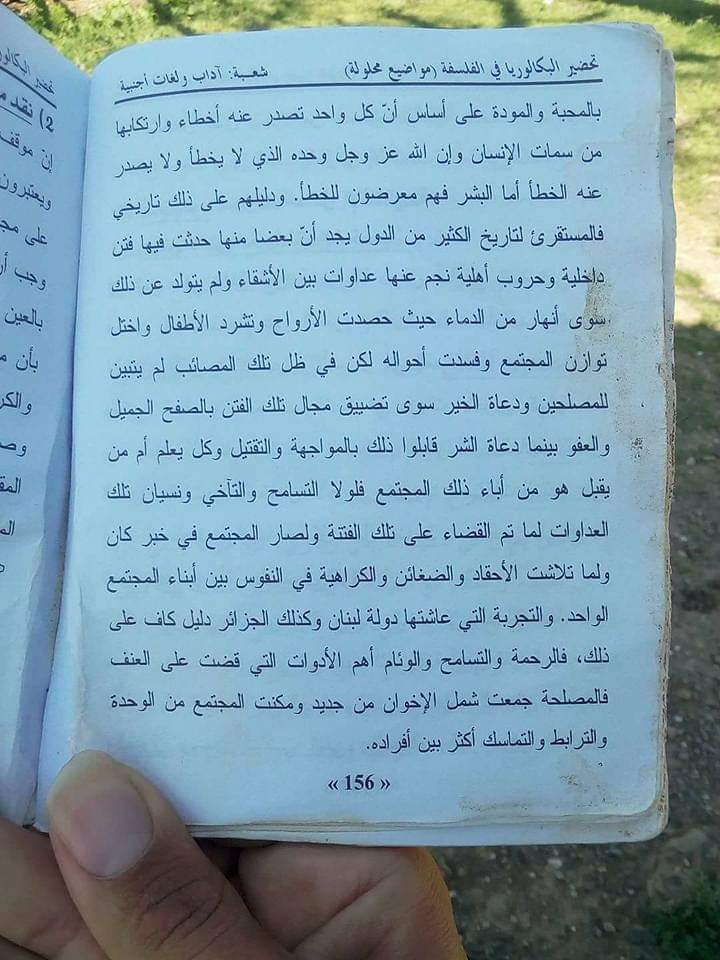 تحضير البكالوريا في الفلسفة (مواضيع محلولة) شعبة: آداب ولغات أجنبية
بالمحبة والمودة على أساس أنّ كل واحد تصدر عنه أخطاء وارتكابها
من سمات الإنسان وإن الله عز وجل وحده الذي لا يخطأ ولا يصدر
عنه الخطأ أما البشر فهم معرضون للخطأ. ودليلهم على ذلك تاريخي
فالمستقرئ لتاريخ الكثير من الدول يجد أنّ بعضا منها حدثت فيها فتن
داخلية وحروب أهلية نجم عنها عداوات بين الأشقاء ولم يتولد عن ذلك
سوى أنهار من الدماء حيث حصدت الأرواح وتشرد الأطفال واختل
توازن المجتمع وفسدت أحواله لكن في ظل تلك المصائب لم يتبين
للمصلحين ودعاة الخير سوى تضييق مجال تلك الفتن بالصفح الجميل
والعفو بينما دعاة الشر قابلوا ذلك بالمواجهة والتقتيل وكل يعلم أم من
يقبل هو من أباء ذلك المجتمع فلولا التسامح والتآخي ونسيان تلك
العداوات لما تم القضاء على تلك الفتنة ولصار المجتمع في خبر كان
ولما تلاشت الأحقاد والضغائن والكراهية في النفوس بين أبناء المجتمع
الواحد. والتجربة التي عاشتها دولة لبنان وكذلك الجزائر دليل كاف على
ذلك، فالرحمة والتسامح والوئام أهم الأدوات التي قضت على العنف
فالمصلحة جمعت شمل الإخوان من جديد ومكنت المجتمع من الوحدة
والترابط والتماسك أكثر بين أفراده.
« 156 »
تحضير البكالوريا
2) نقد
إنّ موقف
ويعتبرون
على
وجب
بالعين
بأن